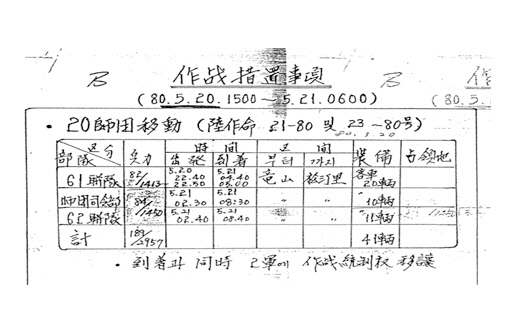 B
作战措置事項
B
作
(80.5.20.1500~5.21.0600)
(80.5.
• 20師団移動 (陸作命 21-80 및 23-80号)
80.5.20
区分 時間 区間
部隊 兵力 出発 到着 부터 까지 装備 占領地
61聯隊 82/1413 5.20 22.40 22.50 5.21 04.40 05.00 竜山 客車 20車両
師団司令部 5.21 02.30 5.21 08:30 〃 〃 10車両
62聯隊 5.21 02.40 5.21 08.40 〃 〃 11車両
計 41車両
• 到着과 同時 2軍에 作战統制权 移譲